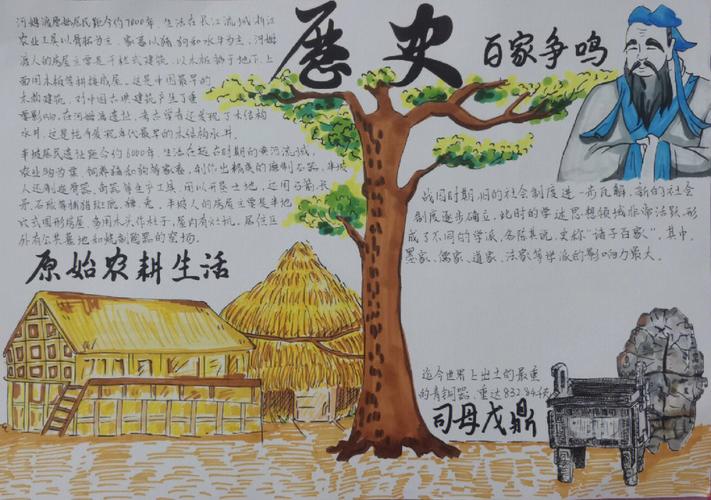 歷史
百家争鸣
河姆渡原始居民距今约7000年,生活在长江流域,浙江
农业工具以骨耜为主,家畜以猪狗和水牛为主,河姆
渡人的房屋主要是干栏式建筑,以木板铺于地下,上
面用木板等拼接成屋,这是中国最早的
木构建筑,对中国古典建筑产生了重
要影响,在河姆渡遗址,考古学者还发现了木结构
水井,这是迄今发现年代最早的木结构水井。
半坡居民遗址距今约6000年,生活在远古时期的黄河流域,
农业以为业,饲养猪和狗等家畜,制作出精美的磨制石器,半坡
人还制造骨器、角器等生产工具,用以开垦土地,还用石箭、长
矛、石
穴式圆形房屋,多用木头作柱子,屋内有灶坑,居住区
外有公共墓地和烧制陶器的窑场。
原始农耕生活
战国时期,旧的社会制度进一步瓦解,新的社会
制度逐步确立,此时的学术思想领域非常活跃,形
成了不同的学派,各陈其说,史称“诸子百家”,其中,
墨家、儒家、道家、法家等学派的影响力最大。
迄今世界上出土的最重
的青铜器,重达832.84千
司母戊鼎